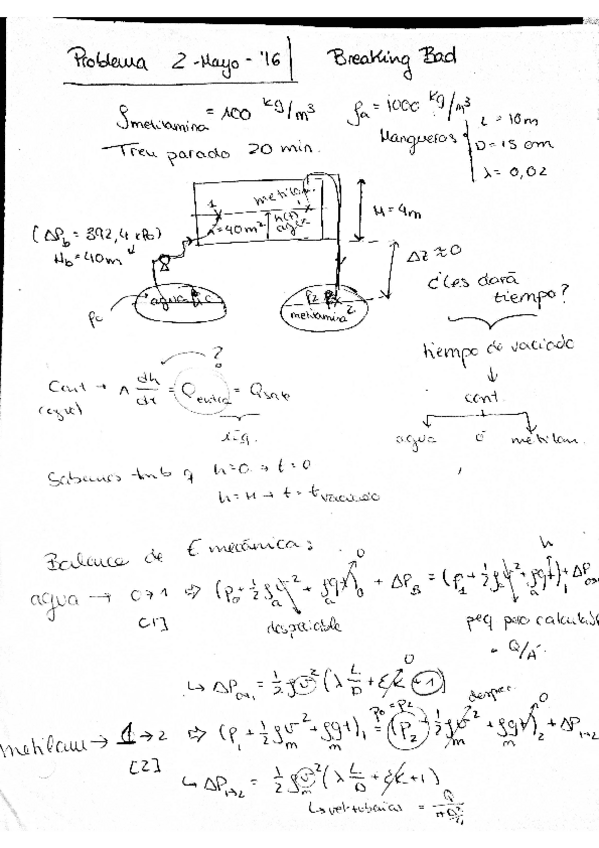 Problema 2 - Mayo - '16 Breaking Bad
ρmetilamina = 100 kg/m³ ρa = 1000 kg/m³
Tren parado 20 min. Mangueras L = 10m
D = 15 cm
λ = 0,02
metilam.
1
A = 40m² h(t) agua
H = 4m
(ΔPb = 392,4 kPa)
Hb = 40m
ΔZ ≈ 0
agua
P0
P2
metilamina 2
¿Les dará
tiempo?
tiempo de vaciado
cont.
agua ó metilam.
?
Cont → A dh/dt = Qentra = Qsale
(agua)
Sabemos tmb q h=0 → t=0
h=H → t = tvaciado
Balance de E mecánica:
agua → 0→1 ⇒ (P0 + ½ρa v² + ρa gz)0 + ΔPB = (P1 + ½ρa v² + ρa gz)1 + ΔP0→1
[1] despreciable peq pero calculable
= Q/A
↳ ΔP0→1 = ½ρv² (λ L/D + ΣK + 1)
P0=P2 desprec.
metilam → 1→2 ⇒ (P1 + ½ρm v² + ρm gz)1 = (P2 + ½ρm v² + ρm gz)2 + ΔP1→2
[2]
↳ ΔP1→2 = ½ρm v² (λ L/D + ΣK + 1)
↳ vel. tuberías = Q/πD²/4